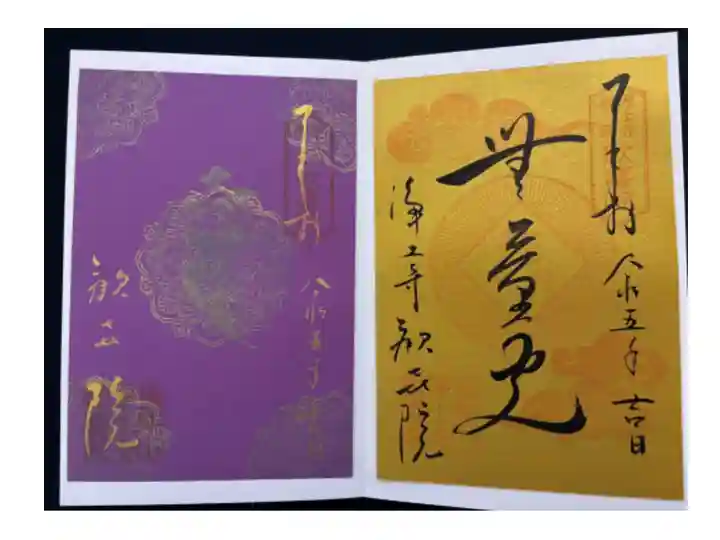 奉拝 令和五年 吉日
無量
浄土寺 歓喜院
奉拝 令和五年 吉日
歓喜院